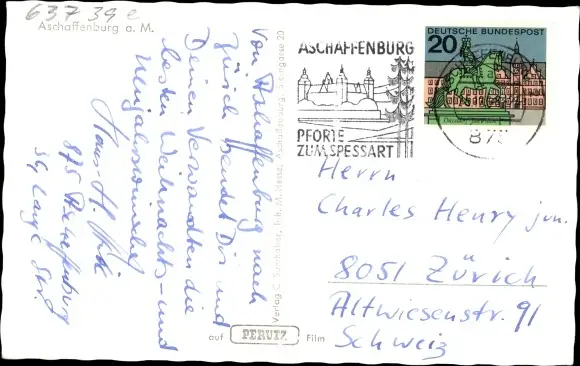 637 39 e
Aschaffenburg a. M.
Von Aschaffenburg nach
Zürich sendet Dir und
Deinen Verwandten die
besten Weihnachts- und
Neujahrswünsche
Hans-H.
875 Aschaffenburg
39, Lange Str.
auf PERUTZ Film
ASCHAFFENBURG
PFORTE
ZUM SPESSART
DEUTSCHE BUNDESPOST
20
Herrn
Charles Henry jun.
8051 Zürich
Altwiesenstr. 91
Schweiz